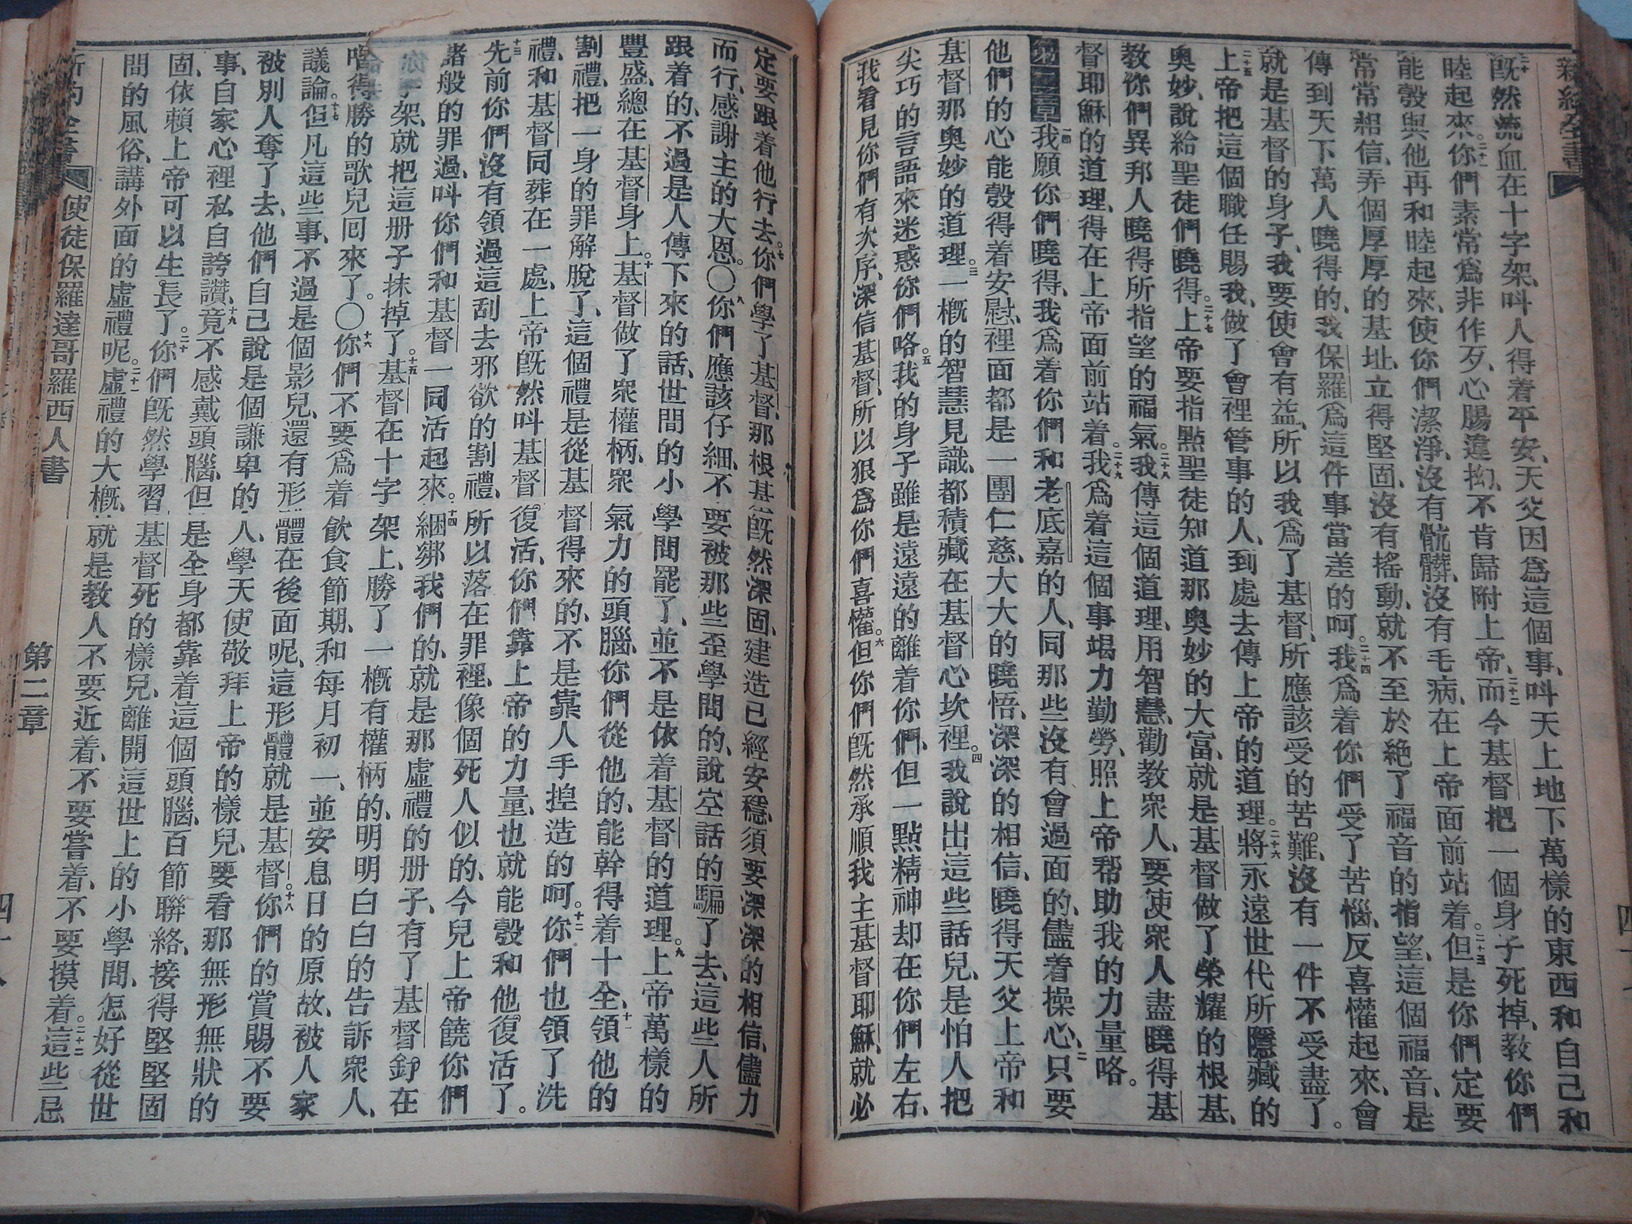 新約全書
既然流血在十字架、叫人得着平安、天父因爲這個事、叫天上地下萬樣的東西和自己和
睦起來、你們素常爲非作歹、心腸違拗、不肯歸附上帝、而今基督把一個身子死掉、教你們
能彀與他再和睦起來、使你們潔淨、沒有骯髒、沒有毛病、在上帝面前站着。但是你們定要
常常相信、弄個厚厚的基址、立得堅固、沒有搖動、就不至於絶了福音的指望、這個福音、是
傳到天下萬人曉得的、我保羅爲這件事當差的呵。二十四我爲着你們受了苦惱、反喜懽起來、會
就是基督的身子、我要使會有益、所以我爲了基督、所應該受的苦難、沒有一件不受盡了。
二十五上帝把這個職任賜我、做了會裡管事的人、到處去傳上帝的道理。二十六將永遠世代所隱藏的
奧妙、說給聖徒們曉得。二十七上帝要指點聖徒知道那奧妙的大富、就是基督做了榮耀的根基、
教你們異邦人曉得所指望的福氣。二十八我傳這個道理、用智慧、勸教衆人、要使衆人盡曉得基
督耶穌的道理、得在上帝面前站着。二十九我爲着這個事竭力勤勞、照上帝帮助我的力量咯。
我願你們曉得、我爲着你們和老底嘉的人、同那些沒有會過面的、儘着操心、二只要
他們的心能彀得着安慰、裡面都是一團仁慈、大大的曉悟、深深的相信、曉得天父上帝和
基督那奧妙的道理。三一概的智慧見識、都積藏在基督心坎裡。四我說出這些話兒、是怕人把
尖巧的言語來迷惑你們咯。五我的身子雖是遠遠的離着你們、但一點精神却在你們左右、
我看見你們有次序、深信基督、所以狠爲你們喜懽。六但你們既然承順我主基督耶穌、就必
定要跟着他行去。七你們學了基督、那根基既然深固、建造已經安穩、須要深深的相信、儘力
而行、感謝主的大恩。〇八你們應該仔細、不要被那些歪學問的、說空話的騙了去、這些人所
跟着的、不過是人傳下來的話、世間的小學問罷了、並不是依着基督的道理。九上帝萬樣的
豐盛、總在基督身上。十基督做了衆權柄、衆氣力的頭腦、你們從他的、能幹得着十全、十一領他的
割禮、把一身的罪解脫了、這個禮是從基督得來的、不是靠人手揑造的呵。十二你們也領了洗
禮、和基督同葬在一處、上帝既然叫基督復活、你們靠上帝的力量、也就能彀和他復活了。
十三先前你們沒有領過這刮去邪欲的割禮、所以落在罪裡、像個死人似的、今兒上帝饒你們
諸般的罪過、叫你們和基督一同活起來。十四綑綁我們的、就是那虛禮的册子、有了基督釘在
架、就把這册子抹掉了。十五基督在十字架上、勝了一概有權柄的、明明白白的告訴衆人、
唱得勝的歌兒回來了。〇十六你們不要爲着飲食節期、和每月初一、並安息日的原故、被人家
議論。十七但凡這些事、不過是個影兒、還有形體在後面呢、這形體就是基督。十八你們的賞賜不要
被別人奪了去、他們自己說是個謙卑的人、學天使敬拜上帝的樣兒、要看那無形無狀的
事、自家心裡私自誇讃、十九竟不感戴頭腦、但是全身都靠着這個頭腦、百節聯絡、接得堅堅固
固、依賴上帝可以生長了。二十你們既然學習基督死的樣兒、離開這世上的小學問、怎好從世
間的風俗、講外面的虛禮呢。二十一虛禮的大概、就是教人不要近着、不要嘗着、不要摸着。二十二這些忌
新約全書 使徒保羅達哥羅西人書 第二章